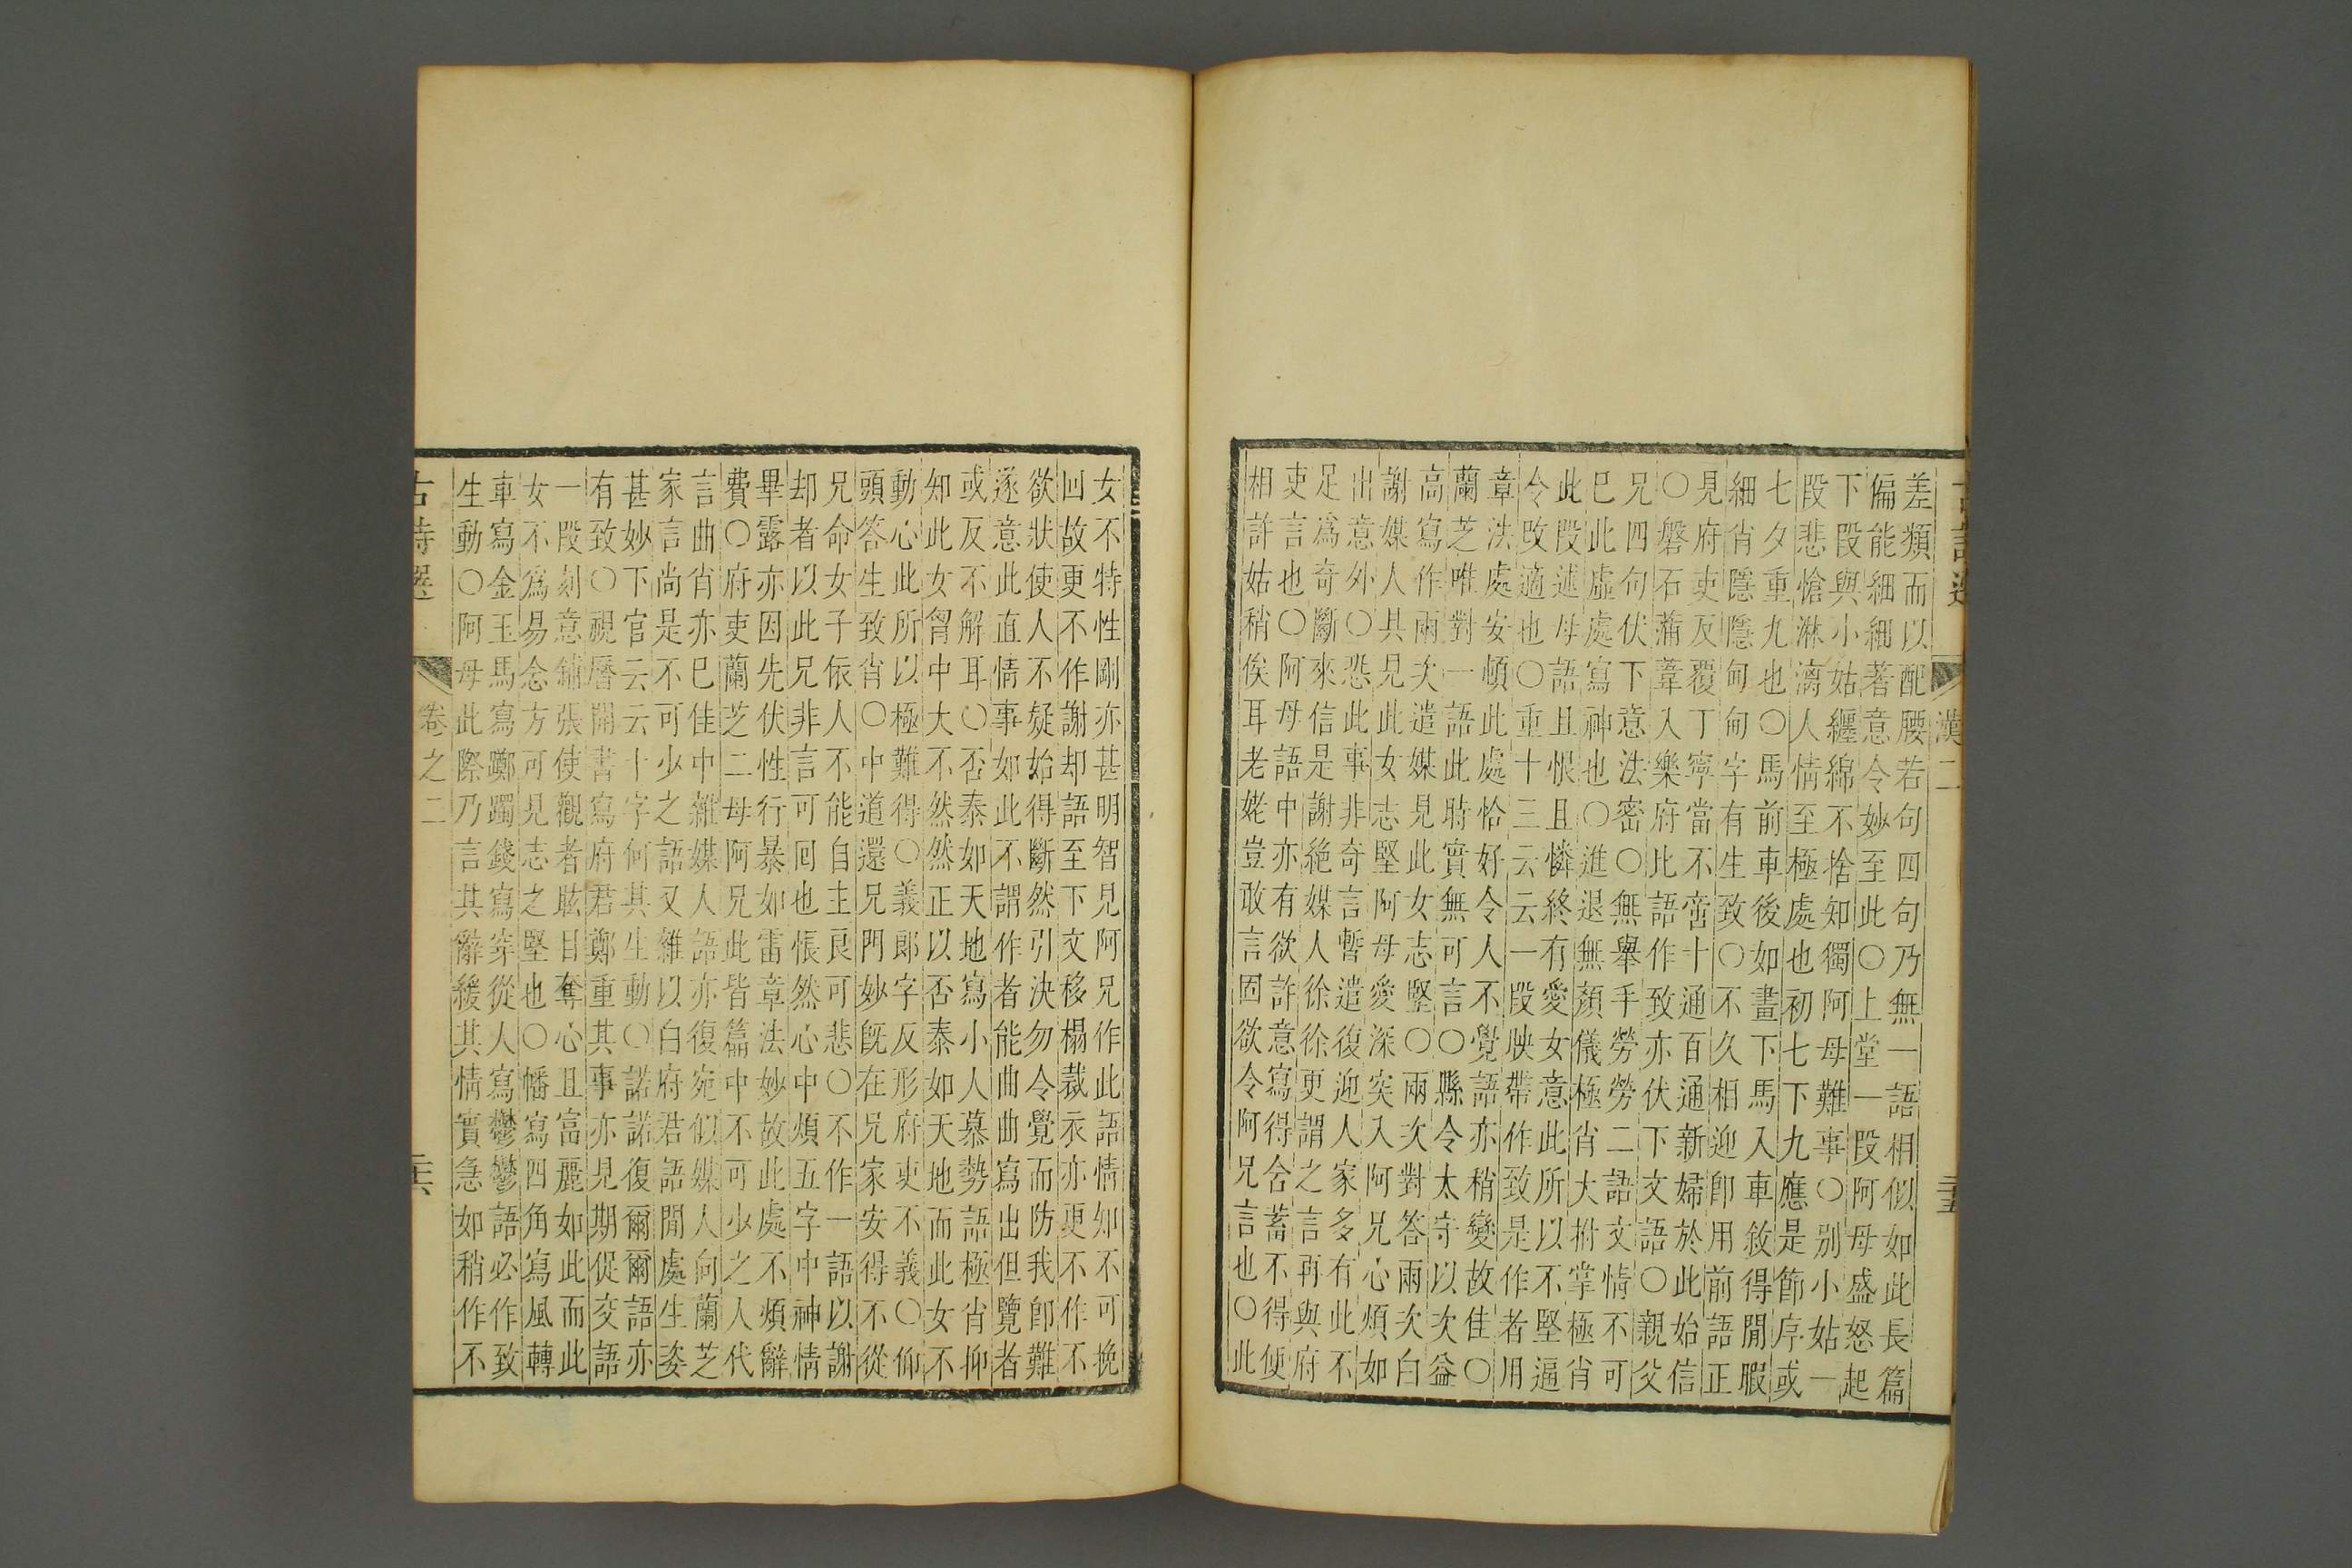 漢二
差類而以配腰若句四句乃無一語相似如此長篇
偏能細細著意令妙至此○上堂一段阿母盛怒起
下段與小姑纏綿不捨知獨阿母難事○別小姑一
段悲愴淋漓人情至極處也初七下九應是節序或
七夕重九也○馬前車後如畫下馬入車敘得閒暇
細肖隱隱甸甸字有生致○不久相迎卽用前語正
見府吏反覆丁寧當不啻十通百通新婦於此始信
○磐石蒲葦入樂府比語作致亦伏下文語○親父
兄四句伏下意法密○無舉手勞勞二語文情不可
巳此虛處寫神也○進退無顏儀極肖大拊掌極肖
此段述母語且恨且憐終有愛女意此所以不堅逼
令改適也○重十三云云一段映帶作致是作者用
章法處安頓此處恰好令人不覺語亦稍變故佳○
蘭芝唯對一語此時實無可言○縣令太守以次益
高寫作兩次遣媒見此女志堅○兩次對答兩次白
謝媒人其見此女志堅阿母愛深突入阿兄心煩如
出意外○恐此事非奇言暫遣復迎人家多有此不
足爲奇斷來信是謝絶媒人徐徐更謂之言再與府
吏言也○阿母語中亦有欲許意寫得含蓄不得便
相許姑稍俟耳老姥豈敢言固欲令阿兄言也○此
女不特性剛亦甚明智見阿兄作此語情知不可挽
回故更不作謝却語至下文移榻裁衣亦更不作不
欲狀使人不疑始得斷然引決勿令覺而防我卽難
遂意此直情事如此不謂作者能曲曲寫出但覽者
或反不解耳○否泰如天地寫小人慕勢語極肖仰
知此女胷中大不然然正以否泰如天地而此女不
動心此所以極難得○義郎字反形府吏不義○仰
頭答生致肖○中道還兄門妙旣在兄家安得不從
兄命女子依人不能自主良可悲○不作一語以謝
却者以此兄非言可回也悵然心中煩五字中神情
畢露亦因先伏性行暴如雷章法妙故此處不煩辭
費○府吏蘭芝二母阿兄此皆篇中不可少之人代
言曲肖亦巳佳中雜媒人語亦復宛似媒人向蘭芝
家言尚是不可少之語又雜以白府君語閒處生姿
甚妙下官云云十字何其生動○諾諾復爾爾語亦
有致○視曆開書寫府君鄭重其事亦見期促交語
一段刻意鋪張使觀者眩目奪心且富麗如此而此
女不爲易念方可見志之堅也○幡寫四角寫風轉
車寫金玉馬寫躑躅錢寫穿從人寫鬱鬱語必作致
生動○阿母此際乃言其辭緩其情實急如稍作不
古詩選 卷之二